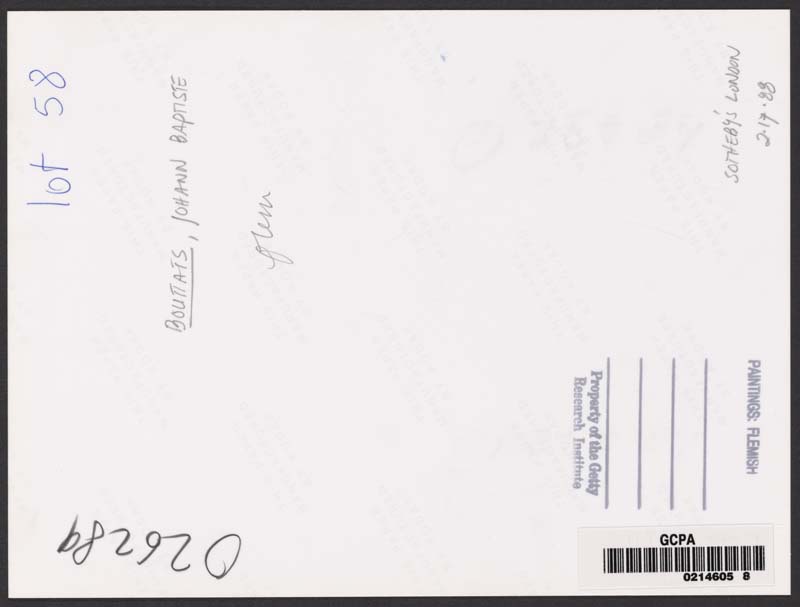 lot 58
BOUTTATS, JOHANN BAPTISTE
flem
SOTHEBY'S LONDON
2·17·88
PAINTINGS: FLEMISH
Property of the Getty
Research Institute
026289
GCPA
0214605 8